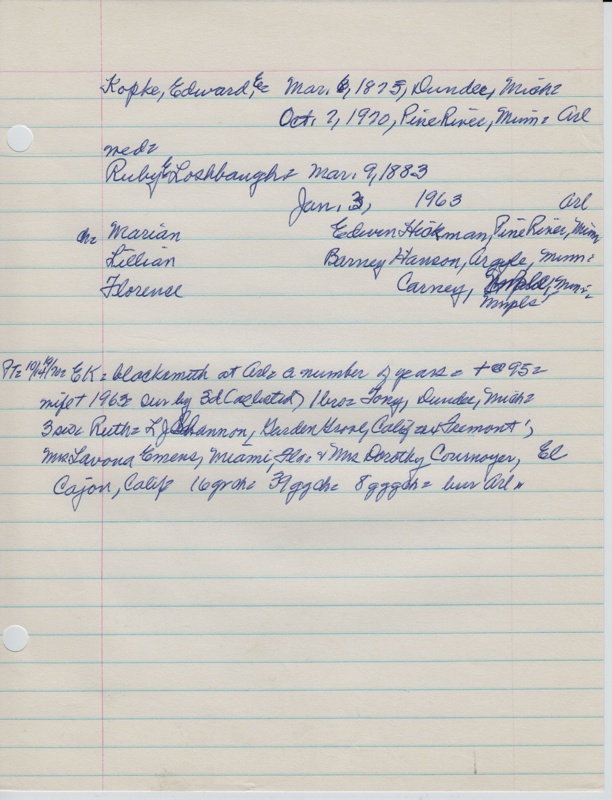 Kopke, Edward, E= Mar. 6, 1875, Dundee, Mich=
Oct. 7, 1970, Pine River, Minn= Arl
med=
Ruby E Loshbaugh= Mar. 9, 1883
Jan. 3, 1963 Arl
ch= Marian Edwin Hickman, Pine River, Minn
Lillian Barney Hanson, Argyle, Minn=
Florence Carney, Minn=
Mnpls
EK= blacksmith at Arl= a number of years= + @ 95=
wife + 1963= sur by 3d (as listed) 1 bro= Tony, Dundee, Mich=
3 sis= Ruth= L J Shannon, Garden Grove, Calif Fremont;
Mrs Lavona Emens, Miami, Fla= & Mrs Dorothy Cournoyer, El
Cajon, Calif 16 grch= 39 ggch= 8 gggch= bur Arl=